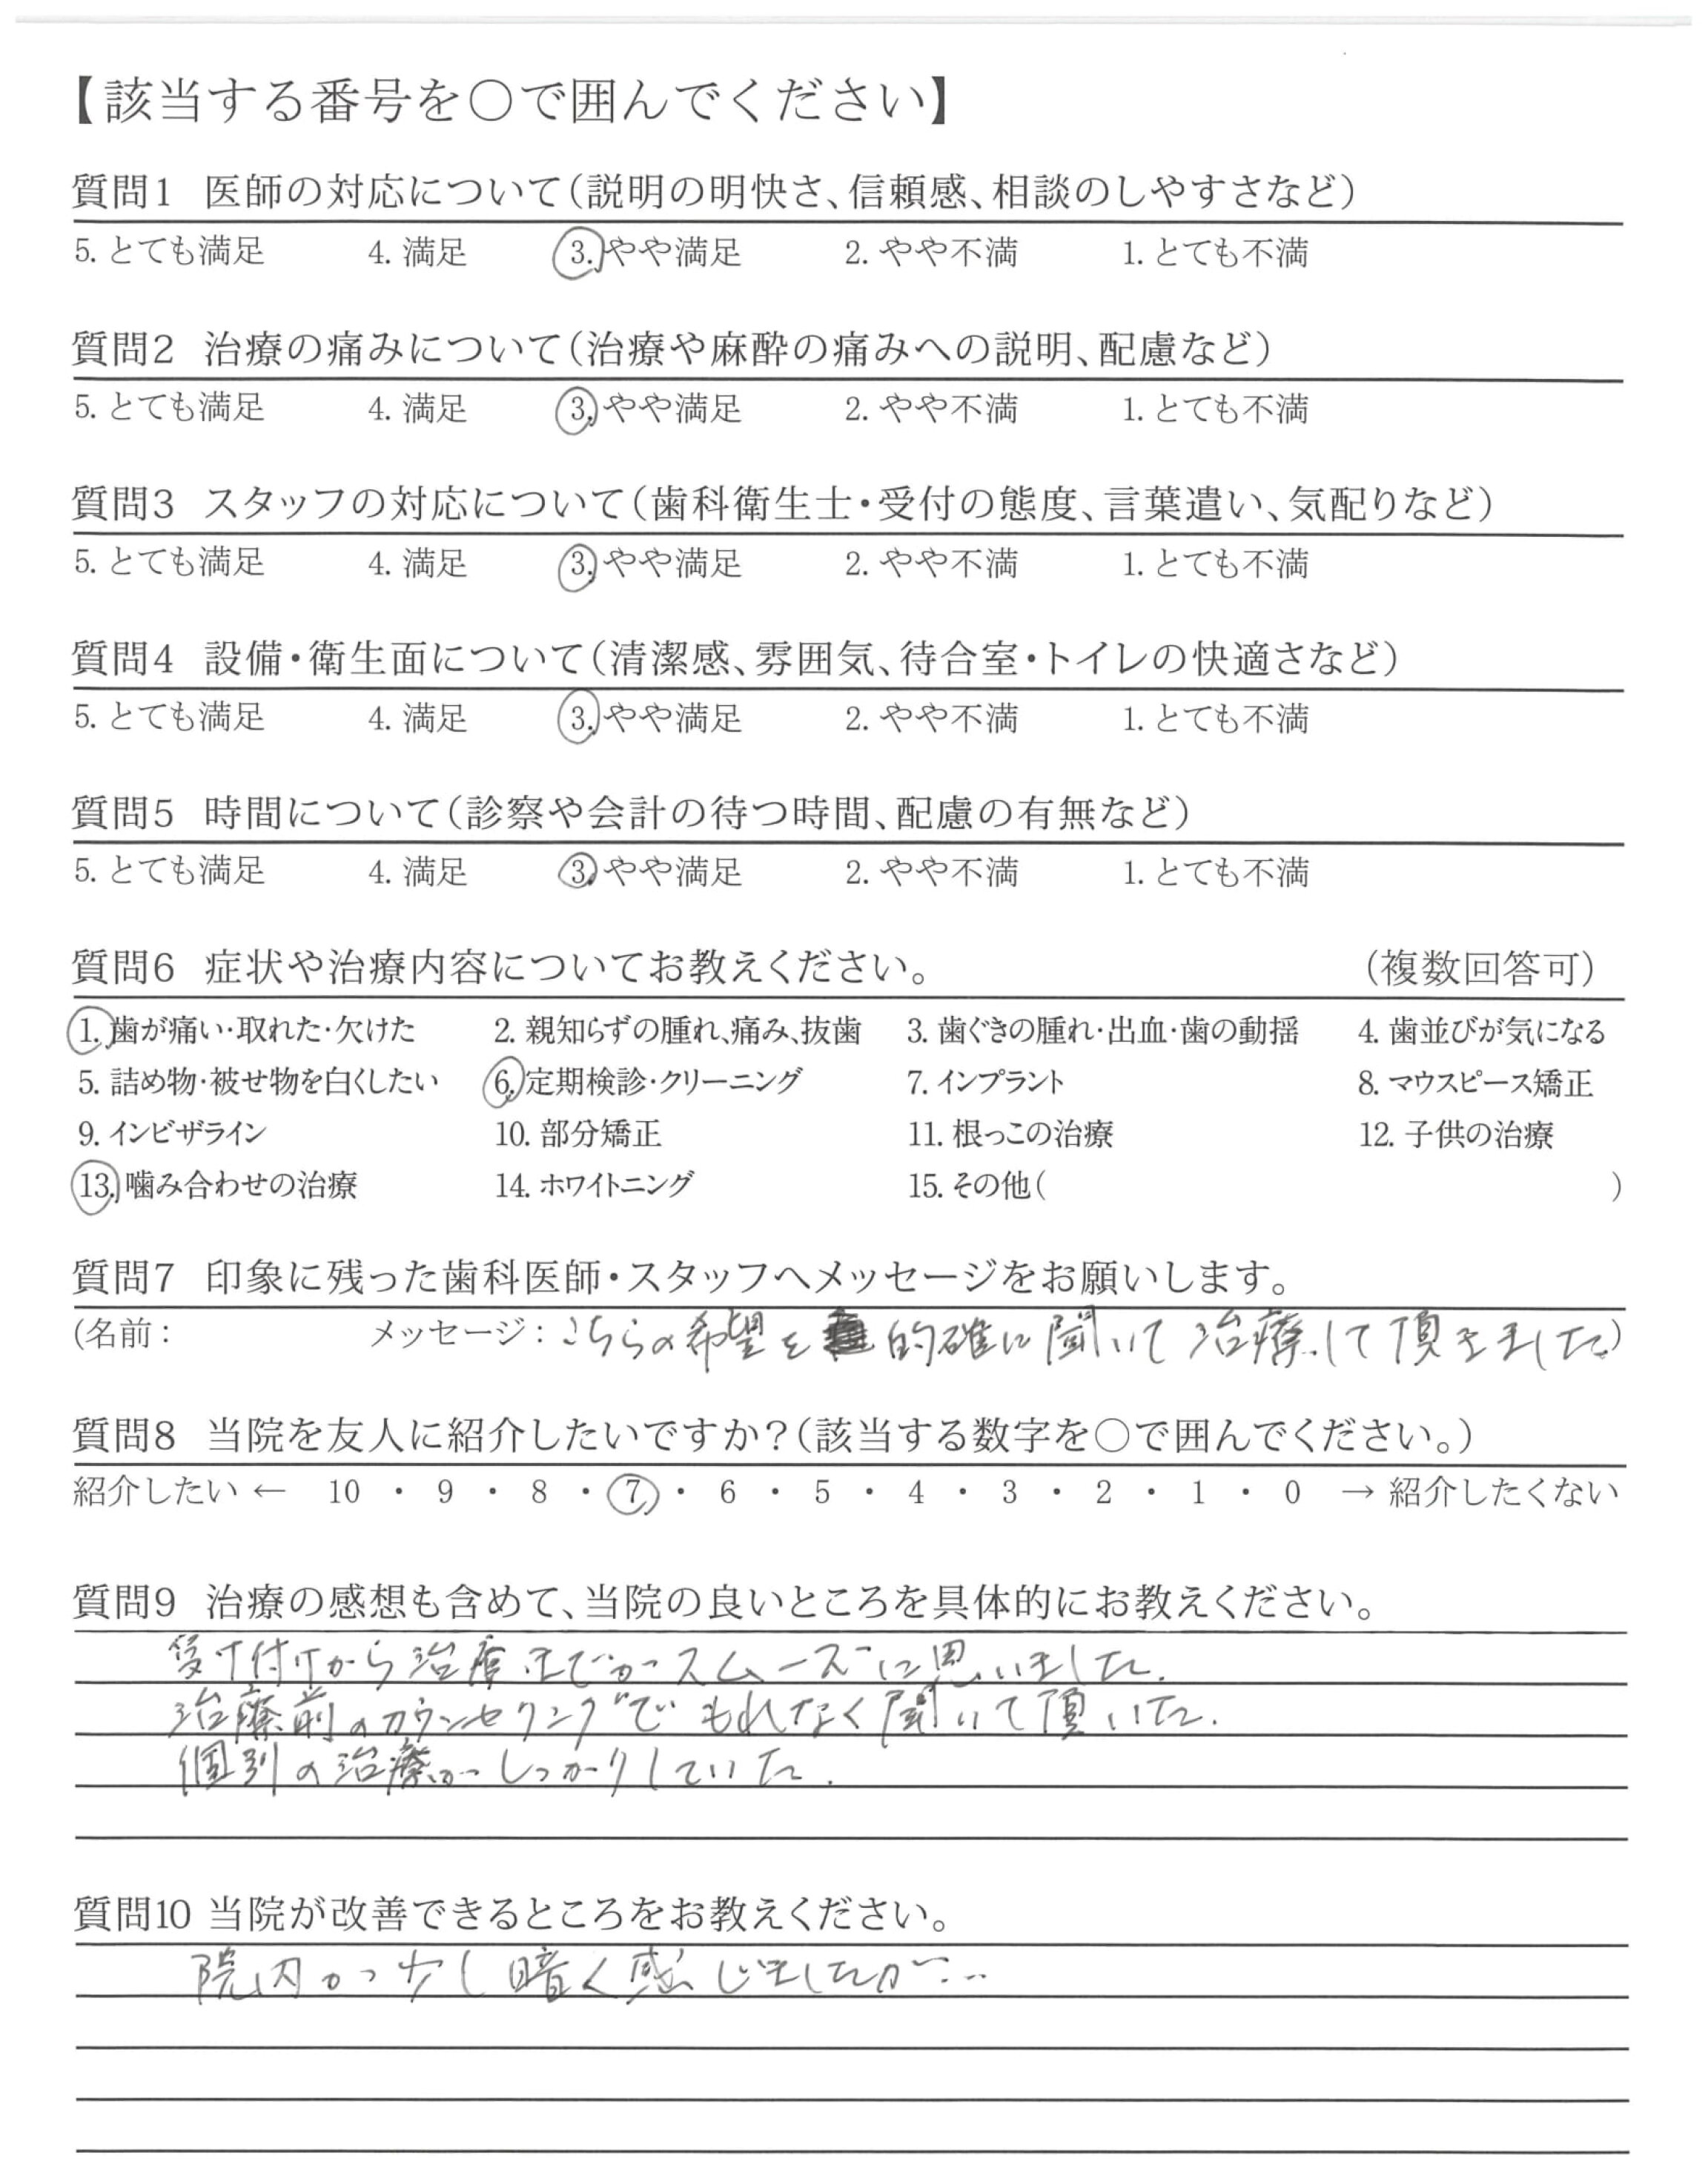 【該当する番号を〇で囲んでください】
質問1 医師の対応について(説明の明快さ、信頼感、相談のしやすさなど)
5. とても満足 4. 満足 3. やや満足 2. やや不満 1. とても不満
質問2 治療の痛みについて(治療や麻酔の痛みへの説明、配慮など)
5. とても満足 4. 満足 3. やや満足 2. やや不満 1. とても不満
質問3 スタッフの対応について(歯科衛生士・受付の態度、言葉遣い、気配りなど)
5. とても満足 4. 満足 3. やや満足 2. やや不満 1. とても不満
質問4 設備・衛生面について(清潔感、雰囲気、待合室・トイレの快適さなど)
5. とても満足 4. 満足 3. やや満足 2. やや不満 1. とても不満
質問5 時間について(診察や会計の待つ時間、配慮の有無など)
5. とても満足 4. 満足 3. やや満足 2. やや不満 1. とても不満
質問6 症状や治療内容についてお教えください。 (複数回答可)
1. 歯が痛い・取れた・欠けた 2. 親知らずの腫れ、痛み、抜歯 3. 歯ぐきの腫れ・出血・歯の動揺 4. 歯並びが気になる
5. 詰め物・被せ物を白くしたい 6. 定期検診・クリーニング 7. インプラント 8. マウスピース矯正
9. インビザライン 10. 部分矯正 11. 根っこの治療 12. 子供の治療
13. 噛み合わせの治療 14. ホワイトニング 15. その他( )
質問7 印象に残った歯科医師・スタッフへメッセージをお願いします。
(名前: メッセージ: こちらの希望を的確に聞いて治療して頂きました)
質問8 当院を友人に紹介したいですか?(該当する数字を〇で囲んでください。)
紹介したい ← 10 ・ 9 ・ 8 ・ 7 ・ 6 ・ 5 ・ 4 ・ 3 ・ 2 ・ 1 ・ 0 → 紹介したくない
質問9 治療の感想も含めて、当院の良いところを具体的にお教えください。
受け付けから治療までがスムーズに思いました.
治療前のカウンセリングでもれなく聞いて頂いた.
個別の治療がしっかりしていた.
質問10 当院が改善できるところをお教えください。
院内が少し暗く感じましたが…